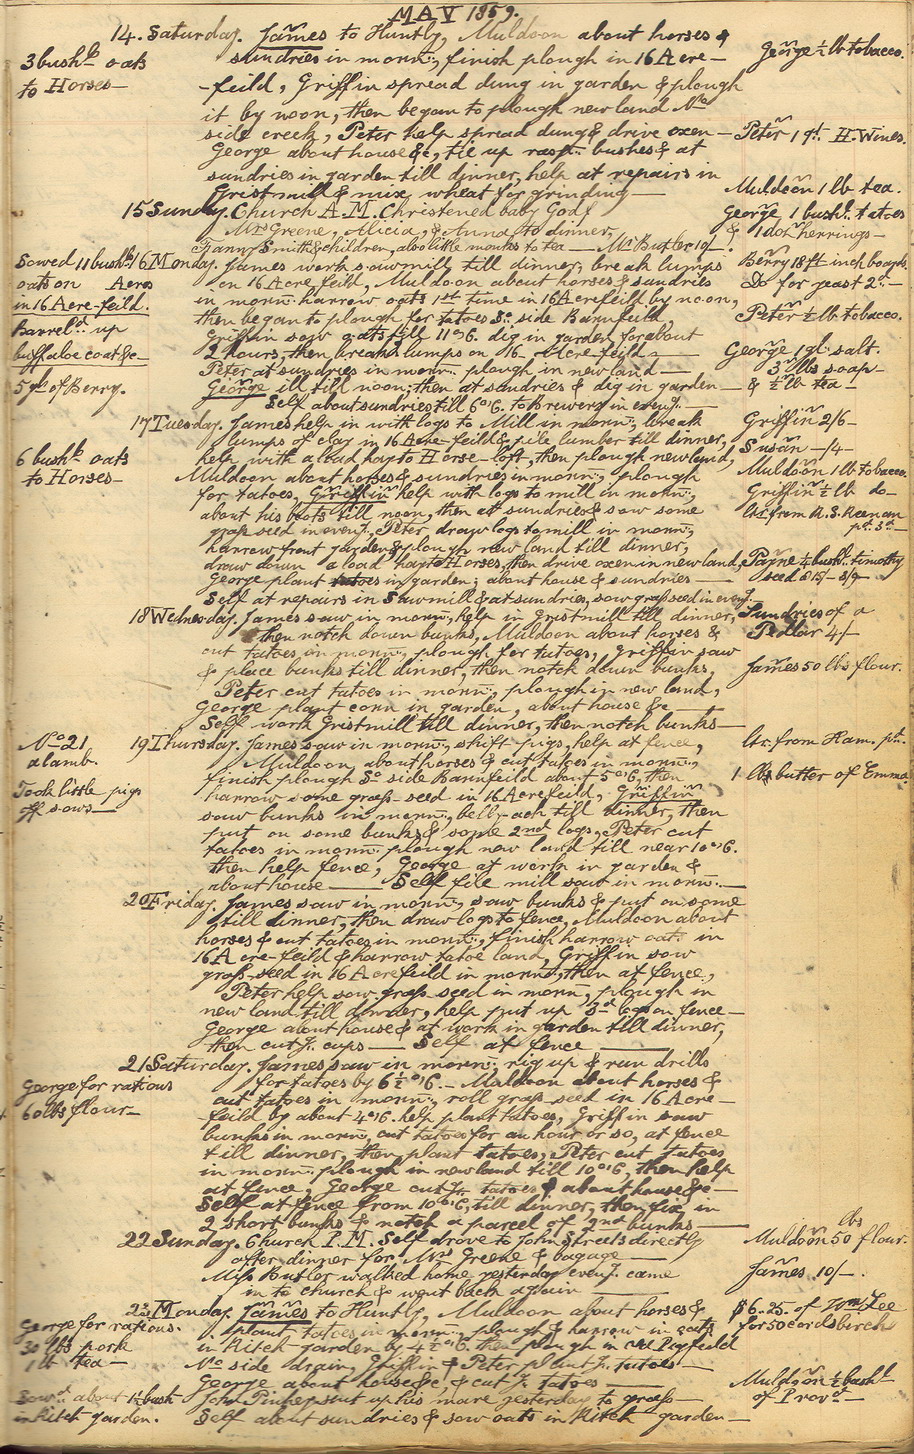 MAY 1859.
14. Saturday. James to Huntly, Muldoon about horses &
3 bushls oats
to Horses—
sundries in morng, finish plough in 16 Acre-
George ½ lb tobacco.
-feild, Griffin spread dung in garden & plough
it by noon, then began to plough new land No
side creek, Peter help spread dung & drive oxen—
Peter 1 qt. H. Wines.
George about house &c, tie up rasp. bushes & at
sundries in garden till dinner, help at repairs in
Gristmill & mix wheat for grinding—
Muldoon 1 lb tea.
15 Sunday. Church A.M. Christened baby Godf
George 1 bushl. tatoes
Mrs Greene, Alicia, & Anna to dinner,
& 1 doz herrings—
Fanny Smith & children, also little monks to tea — Mr Butler 10/.
Sowed 11 bushls
oats on Acres
in 16 Acre-feild.
16 Monday. James work sawmill till dinner, break lumps
Berry 18 ft inch boards
on 16 Acre feild, Muldoon about horses & sundries
Do for yeast 2d.—
in morng. harrow oats 1st time in 16 Acrefeild by noon,
then began to plough for tatoes So. side Barnfeild
Peter ½ lb tobacco.
Barreld. up
buffaloe coat &c—
Griffin sow oats till 11 o'6. dig in garden for about
2 hours, then break lumps on 16 Acre-feild,—
George 1 qt. salt.
Peter at sundries in morng. plough in new land—
3 lbs soap—
5 yds of Berry.
George ill till noon; then at sundries & dig in garden—
& ½ lb tea—
Self about sundries till 6 o'6. to Brewery in eveng.—
17 Tuesday. James help in with logs to Mill in morng, break
Griffin 2/6—
lumps of clay in 16 Acre-feild & pile lumber till dinner,
Susan —/4—
6 bushls oats
to Horses—
help with a load hay to Horse-loft, then plough new land,
Muldoon 1 lb tobacco
Muldoon about horses & sundries in morng, plough
for tatoes, Griffin help with logs to mill in morng,
Griffin ½ lb do—
about his boots till noon, then at sundries & sow some
ltr. from A. S. Keenan
pd. 3d—
grass seed in eveng, Peter draw logs to mill in morng,
harrow front garden & plough new land till dinner,
draw down a load hay to Horses, then drive oxen in new land,
Payne ¼ bushl. timothy
seed @ 15/— 3/9—
George plant tatoes in garden, about house & sundries—
Self at repairs in Sawmill & at sundries, sow grass seed in eveng.—
18 Wednesday. James saw in morng, help in Gristmill till dinner,
Sundries of a
Pedlar 4/—
then notch down bunks, Muldoon about horses &
cut tatoes in morng, plough for tatoes, Griffin saw
& place bunks till dinner, then notch down bunks,
James 50 lbs flour.
Peter cut tatoes in morng, plough in new land,
George plant corn in garden, about house &c—
Self work Gristmill till dinner, then notch bunks—
No 21
a lamb.
19 Thursday. James saw in morng, shift pigs, help at fence,
ltr. from Ham. pd.
Muldoon about horses & cut tatoes in morng,
finish plough So side Barnfeild about 5 o'6, then
1 lb butter of Emma
Took little pigs
off sows—
harrow some grass-seed in 16 Acrefeild, Griffin
saw bunks in morng, belly-ach till dinner, then
put on some bunks & some 2nd logs, Peter cut
tatoes in morng. plough new land till near 10 o'6.
then help fence, George at work in garden &
about house — Self file mill saw in morng.—
20 Friday. James saw in morng, saw bunks & put on some
till dinner, then draw logs to fence, Muldoon about
horses & cut tatoes in morng, finish harrow oats in
16 Acre-feild & harrow tatoe land, Griffin sow
grass-seed in 16 Acrefeild in morng, then at fence,
Peter help sow grass-seed in morng, plough in
new land till dinner, help put up 3d logs on fence—
George about house & at work in garden till dinner,
then cutg. cups — Self at fence —
21 Saturday. James saw in morng. rig up & run drills
for tatoes by 6½ o'6.— Muldoon about horses &
George for rations
60 lbs flour—
cut tatoes in morng, roll grass seed in 16 Acre-
feild by about 4 o'6. help plant tatoes, Griffin saw
bunks in morng, cut tatoes for an hour or so, at fence
till dinner, then plant tatoes, Peter cut tatoes
in morng. plough in new land till 10 o'6, then help
at fence, George cutg. tatoes & about house &c—
Self at fence from 10 o'6, till dinner, then fix in
2 short bunks & notch a parcel of 2nd bunks—
22 Sunday. Church P.M. Self drove to John Streets directly
Muldoon 50 lbs flour.
after dinner for Mrs Greene & bagage—
Miss Butler walked home yesterday eveng. came
James 10/—.
in to church & went back again—
23 Monday. James to Huntly, Muldoon about horses &
$6.25. of Wm Lee
for 50 cords birch
George for rations.
30 lbs pork
1 lb tea—
plant tatoes in morng. plough & harrow in oats
in Kitch garden by 4½ o'6. then plough in old Pigfeild
No side drain, Griffin & Peter plantg. tatoes—
George about house &c, & cutg. tatoes—
Muldoon ½ bushl.
of Provd.—
Sowd. about 1½ bush
in Kitch garden.
John Pinhey put up his mare yesterday to grass—
Self about sundries & sow oats in Kitch garden—